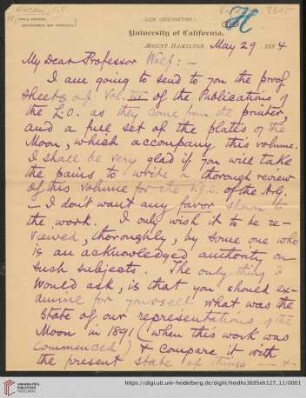 LICK OBSERVATORY
University of California,
MOUNT HAMILTON, May 29 1894
My dear Professor Wolf: —
I am going to send to you the proof
sheets of Vol. III of the Publications of
the L.O. as they come from the printer,
and a full set of the plates of the
Moon, which accompany this volume.
I shall be very glad if you will take
the pains to write a thorough review
of this volume for the V.J.S. of the A.G.
— I don't want any favor shown to
the work. I only wish it to be re-
viewed, thoroughly, by some one who
is an acknowledged authority on
such subjects. The only thing I
would ask, is that you should ex-
amine for yourself what was the
state of our representations of the
Moon in 1891 (when this work was
commenced) & compare it with
the present state of things — &
UNIVERSITÄTS-
BIBLIOTHEK
HEIDELBERG
https://digi.ub.uni-heidelberg.de/diglit/heidhs3695eh127_11/0081